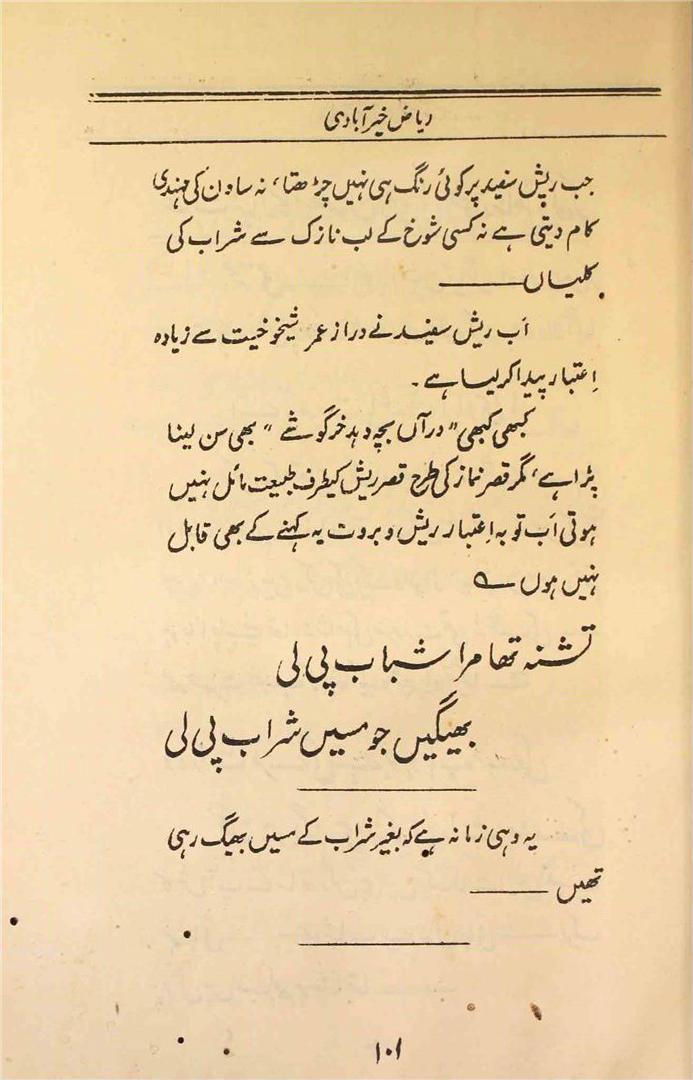 ریاض خیرآبادی
جب ریش سفید پر کوئی رنگ ہی نہیں چڑھتا، نہ ساون کی مہندی
کام دیتی ہے نہ کسی شوخ کے لب نازک سے شراب کی
کلیاں ——
اَب ریش سفید نے دراز عمر شیخوخیت سے زیادہ
اِعتبار پیدا کر لیا ہے۔
کبھی کبھی "در آں بچہ دہد خرگوشے" بھی سن لینا
پڑا ہے، مگر قصر نماز کی طرح قصر ریش کیطرف طبیعت مائل نہیں
ہوتی اَب تو بہ اِعتبار ریش و بروت یہ کہنے کے بھی قابل
نہیں ہوں ؎
تشنہ تھا مرا شباب پی لی
بھیگیں جو مسیں شراب پی لی
یہ وہی زمانہ ہے کہ بغیر شراب کے مسیں بھیگ رہی
تھیں ——
۱۰۱